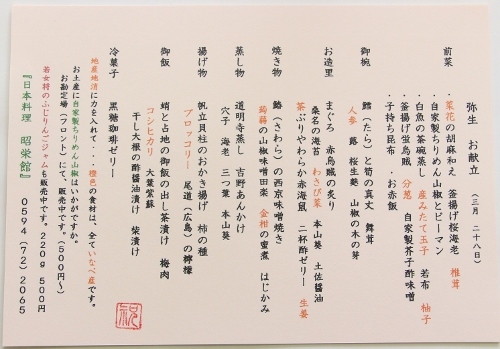 弥生　お献立　（三月　二十八日）
前菜
・菜花の胡麻和え　釜揚げ桜海老　椎茸
・自家製ちりめん山椒とピーマン
・白魚の茶碗蒸し　産みたて玉子　若布　柚子
・釜揚げ蛍烏賊　分葱　自家製芥子酢味噌
・子持ち昆布　・お赤飯
御椀　鱈（たら）と筍の真丈　舞茸
人参　蕗　桜生麩　山椒の木の芽
お造里　まぐろ　赤烏賊の炙り
桑名の海苔　わさび菜　本山葵　土佐醤油
茶ぶりやわらか赤海鼠　二杯酢ゼリー　生姜
焼き物　鰆（さわら）の西京味噌焼き
蒟蒻の山椒味噌田楽　金柑の蜜煮　はじかみ
蒸し物　道明寺蒸し　吉野あんかけ
穴子　海老　三つ葉　本山葵
揚げ物　帆立貝柱のおかき揚げ　柿の種
ブロッコリー　尾道（広島）の檸檬
御飯　蛸と占地の御飯の出し茶漬け　梅肉
コシヒカリ　大葉紫蘇
干し大根の酢醤油漬け　柴漬け
冷菓子　黒糖珈琲ゼリー
地産地消に力を入れて・・・橙色の食材は、全ていなべ産です。
お土産に自家製ちりめん山椒はいかがですか。
お勘定場（フロント）にて、販売中です。（５００円～）
若女将のふじりんごジャムも販売中です。２２０ｇ　５００円
『日本料理　昭栄館』　０５９４（７２）２０６５